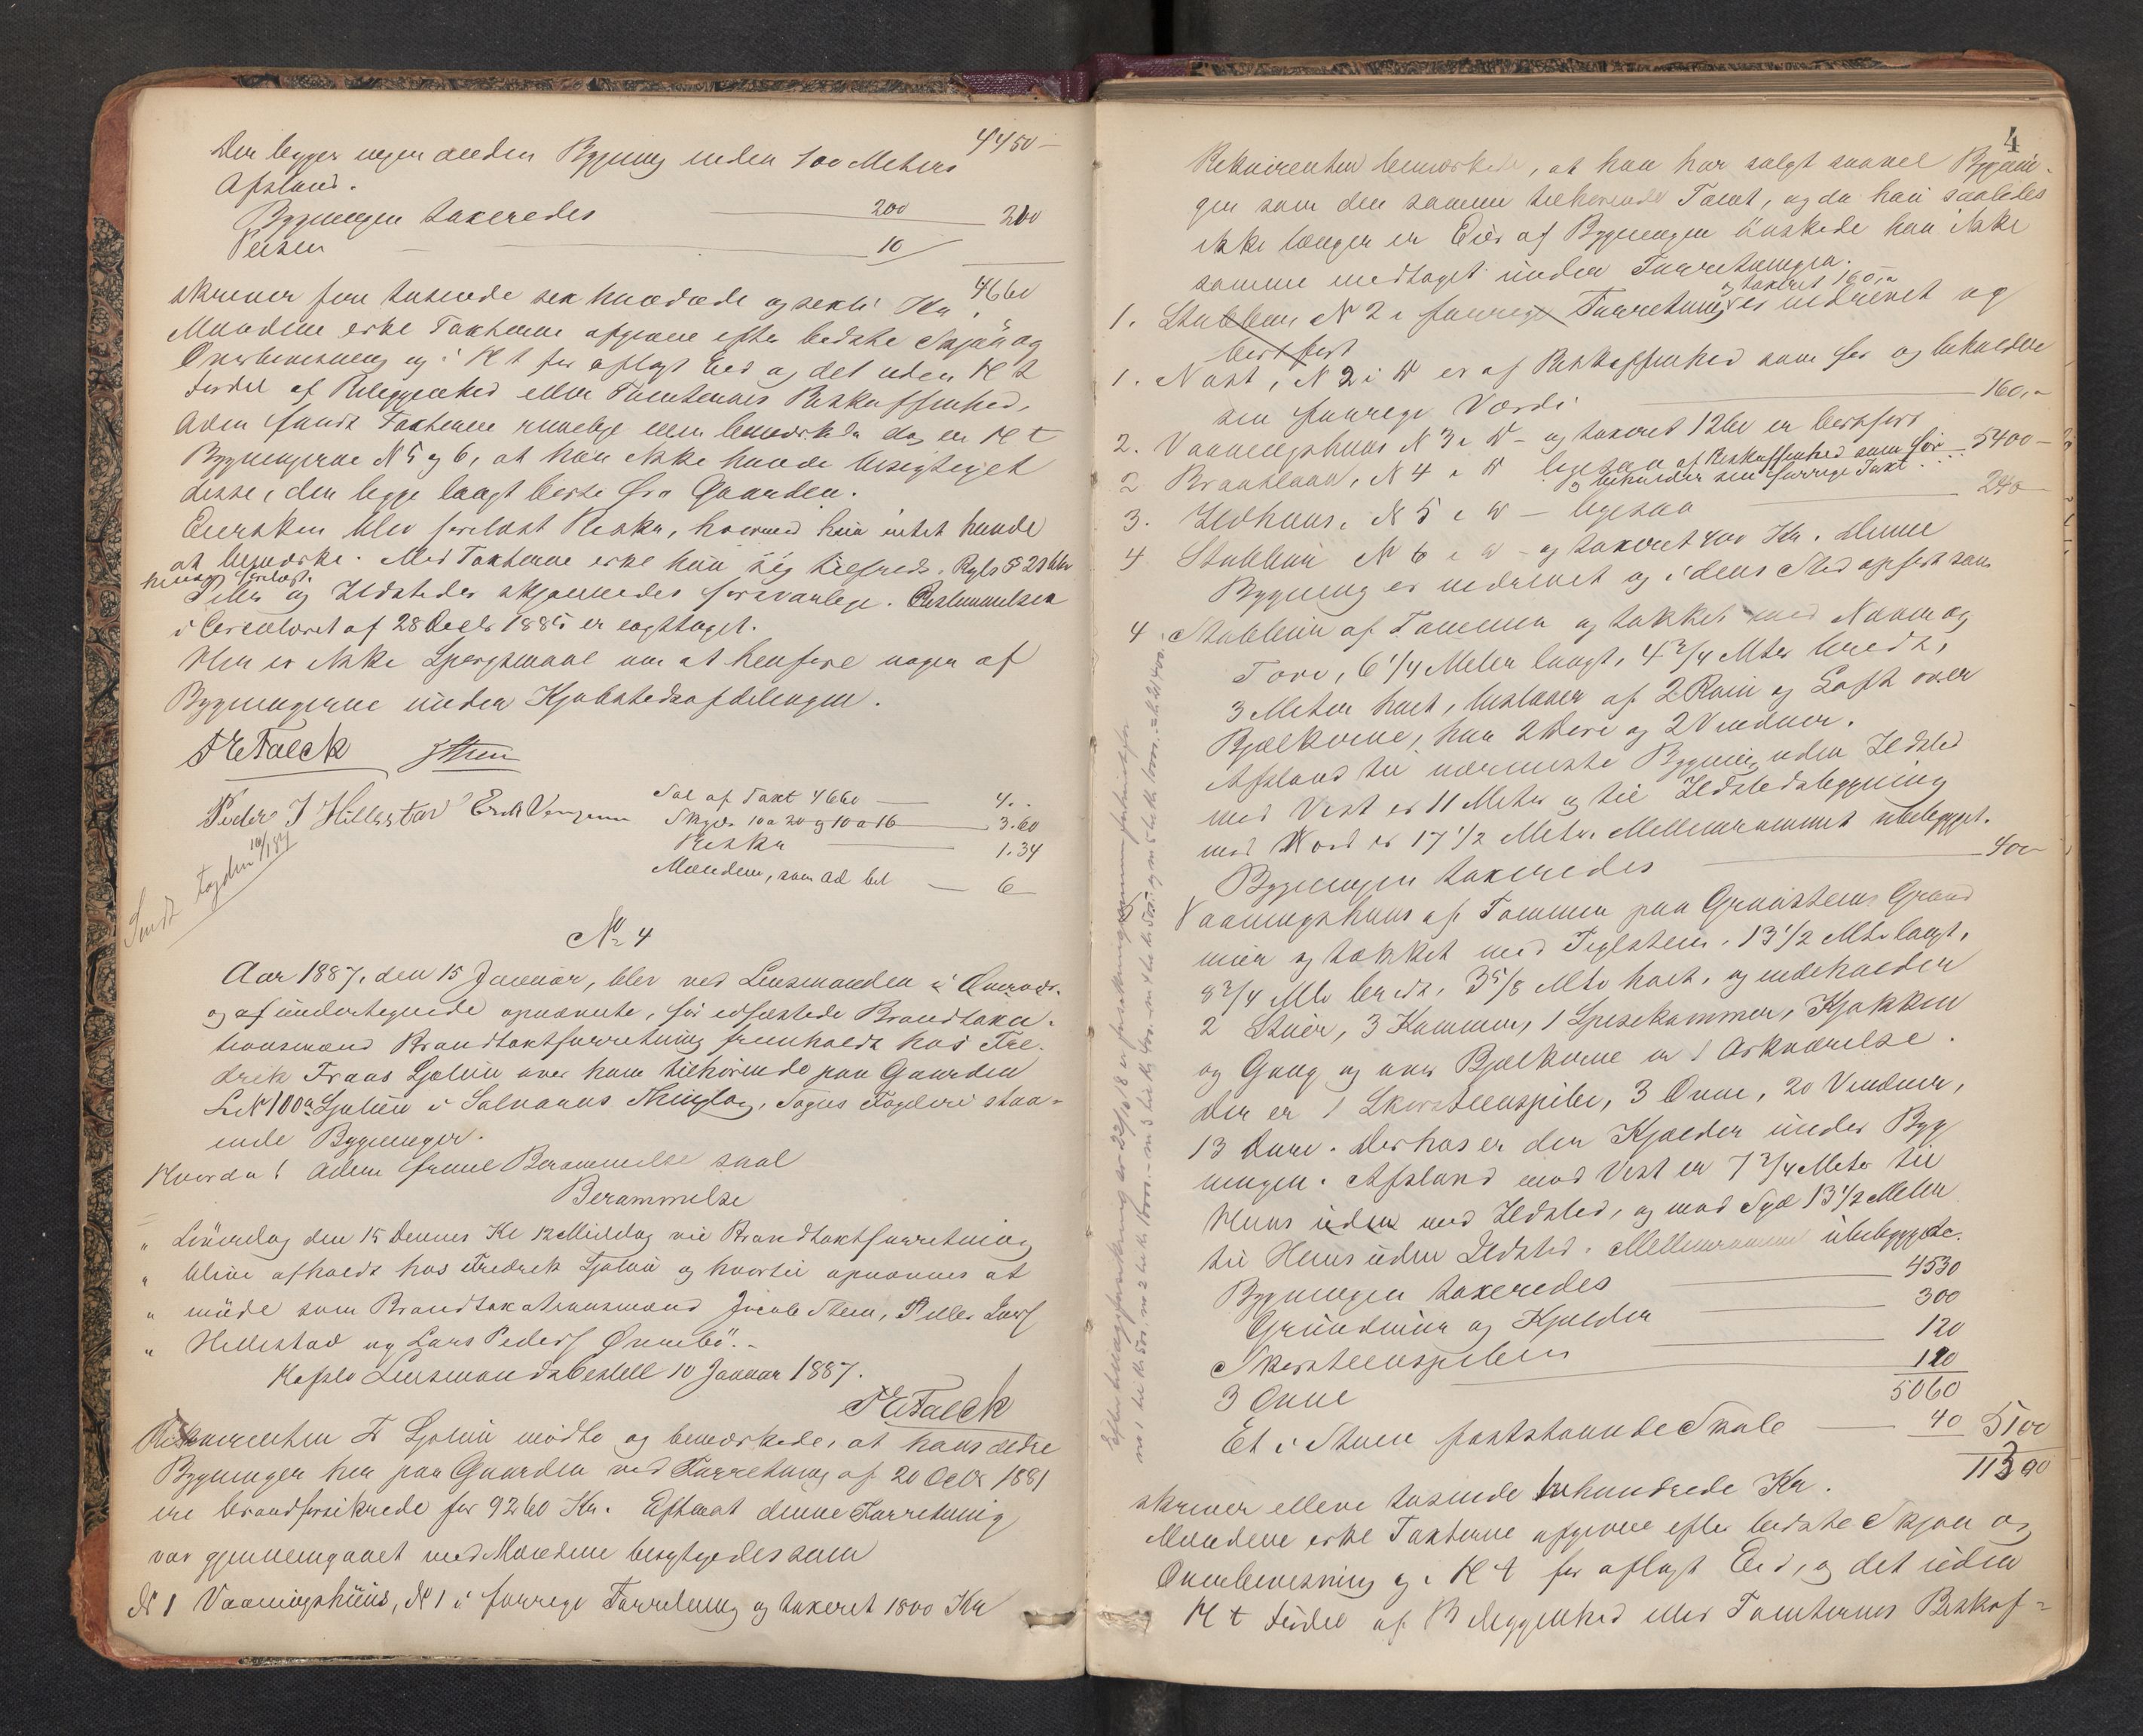 4450 —
Der ligger ingen anden Bygning inden 100 Meters
Afstand.
Bygningen taxeredes 200
Peisen 10 210
4660
skriver fire tusende sex hundrede og sexti Kr.
Mændene erkl Taxterne afgivne efter bedste Skjøn og
Overbevisning og i H t før aflagt Eed og det uden H t
til del af Beliggenhed eller Tomternes Beskaffenhed,
Bygningerne N 5 og 6, at han ikke havde besigtiget
disse, der ligge langt borte fra Gaarden.
Eiersken blev forelæst Reskr, hvormed hun intet havde
at bemærke. Med Taxterne erkl hun sig tilfreds.
Piber og Ildsteder skjønnedes forsvarlige. Bestemmelsen
i Circulæret af 28 Decbr 1885 er iagttaget.
Her er ikke Spørgsmaal om at henføre nogen af
Bygningerne under Kjøbstedsafdelingen.
Peder J Hillestad
Sal af Taxt 4660 — 4. -
Skyds 10 a 20 og 10 a 16 — 3.60
Reskr — 1.34
Mændene, som Ad bet — 6
Sendt Fogden
No 4
Aar 1887, den 15 Januar, blev ved Lensmanden
og af undertegnede opnævnte, før edfæstede Brandtaxa-
tionsmænd Brandtaxtforretning fremholdt hos Fre-
drik Fraas over ham tilhørende paa Gaarden
L.N 100a i Salvaaens Thinglag, Sogns Fogderi staa-
ende Bygninger.
Hvorda! Aden freml Berammelse saal
Berammelse
" Løverdag den 15 Dennes Kl 12 Middag vil Brandtaxtforretning
" blive afholdt hos Fredrik og hvortil opnævnes at
" møde som Brandtaxationsmænd Jacob
" Hillestad og Lars Peders
Hafslo Lensmandsbestell 10 Januar 1887.
Rekvirenten F mødte og bemærkede, at hans ældre
Bygninger her paa Gaarden ved Forretning af 20 Octbr 1881
ere brandforsikrede for 9260 Kr. Efterat denne Forretning
var gjennemgaaet med Mændene besigtigedes som
N 1 Vaaningshuus, N 1 i forrige Forretning og taxeret 1800 Kr
4
Rekvirenten bemærkede, at han har solgt saavel Bygnin-
gen som den samme tilhørende Tomt, og da han saaledes
ikke længer er Eier af Bygningen ønskede han ikke
samme medtaget under Forretningen.
1. Stabbur N 2 i forrige Forretning, og taxeret 160,- er nedrevet og
bortført
1. Nøst, N 2 i D er af Beskaffenhed som før og beholder
sin forrige Værdi 160,-
2. Vaaningshuus N 3 i D — og taxeret 1260 er bortført
2 N 4 i D ligesaa af Beskaffenhed som før 5400 —
og beholder sin forrige Taxt
3. Ildhuus, N 5 i D — ligesaa 240
4 Stabbur N 6 i D — og taxeret 400 Kr. Denne
Bygning er nedrevet og i dens Sted opført som
4 Stabbur af Tømmer og tækket med Næver og
Torv, 6 1/4 Meter langt, 4 3/4 Mtr bredt,
3 Meter høit, bestaaer af 2 Rum og Loft over
Bjælkerne, har 2 Døre og 2 Vinduer.
Afstand til nærmeste Bygning uden Ildsted
mod Vest er 11 Meter og til Ildstedsbygning
mod Nord er 17 1/2 Meter. Mellemrummet ubebygget.
Bygningen taxeredes 400
Vaaningshuus af Tømmer paa Graasteens Grund
muur og tækket med Teglsteen, 13 1/2 Mtr langt,
8 3/4 Mtr bredt, 3 5/8 Mtr høit, og indeholder
2 Stuer, 3 Kammer, 1 Spisekammer, Kjøkken
og Gang og over Bjælkerne er 1 Arkværelse.
Der er 1 Skorsteenspibe, 3 Ovne, 20 Vinduer,
13 Døre. Derhos er der Kjælder under Byg
ningen. Afstand mod Vest er 7 3/4 Meter til
Huus uden med Ildsted, og mod Syd 13 1/2 Meter
til Huus uden Ildsted. Mellemrummene ubebyggede.
Bygningen taxeredes 4530
Grundmuur og Kjælder 300
Skorsteenspiben 120
3 Ovne 110
5060
Et i Stuen faststaaende Skab 40 5100
11300
skriver elleve tusende trehundrede Kr.
Mændene erkl Taxterne afgivne efter bedste Skjøn og
Overbevisning og i H t før aflagt Eed, og det uden
H t til del af Beliggenhed eller Tomternes Beskaf-